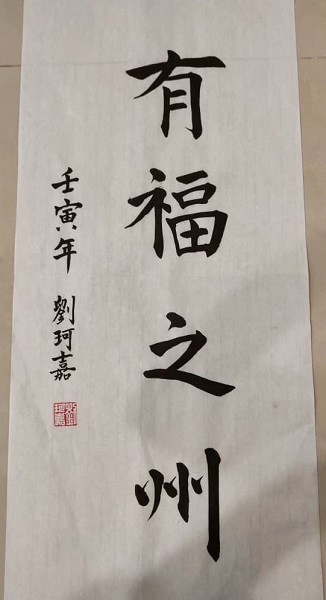 有福之州
壬寅年 劉珂嘉